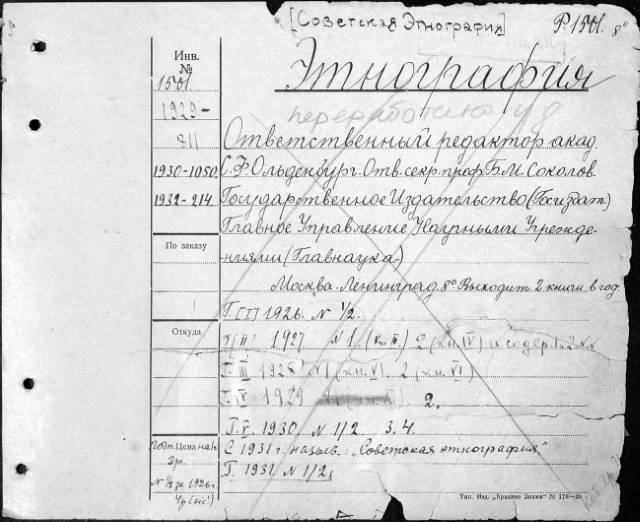 [Советская Этнография]
Р.1501. 8°
Инв. №
1501
1929-
811
1930-1050
1932-214
По заказу
Откуда
Подп. Цена на
3р.
N 1/2 за 1926г.
Этнография
переработано
Ответственный редактор акад.
С.Ф.Ольденбург. Отв. секр. проф. Б.М Соколов.
Государственное Издательство (Госиздат)
Главное Управление Научными Учрежде-
ниями (Главнаука)
Москва-Ленинград. 8° Выходит 2 книги в год.
Г. [I] 1926. N 1/2.
Г. II 1927 N 1 (кн. III.) 2 (кн. IV) и содер. 1 и 2 кн
Г. III 1928 N 1 (кн. V). 2 (кн. VI)
Г. IV 1929 2.
Г. V. 1930 N 1/2 3.4.
С 1931 г. назыв.: „Советская этнография"
Г. 1931 N 1/2,
Тип. Изд. „Красное Знамя" № 178—26